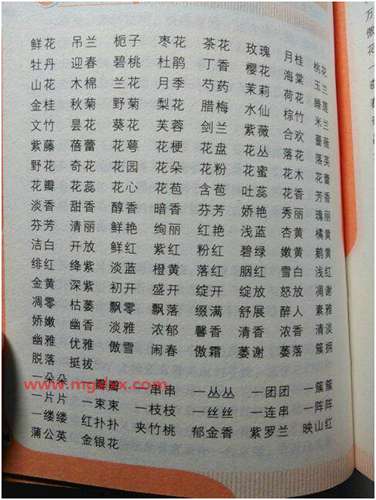 鲜花 吊兰 栀子 枣花 茶花 玫瑰 月桂 桃花
牡丹 迎春 碧桃 杜鹃 丁香 樱花 海棠 玉兰
山花 木棉 兰花 月季 芍药 茉莉 荷花 睡莲
金桂 秋菊 野菊 梨花 腊梅 水仙 棕竹 米兰
文竹 昙花 葵花 芙蓉 剑兰 紫薇 合欢 蔷薇
紫藤 蓓蕾 花萼 花梗 花盘 花丛 落花 落英
野花 奇花 花园 花朵 花粉 花蜜 花木 花卉
花瓣 花蕊 花心 花苞 含苞 吐蕊 花香 芳香
淡香 甜香 醇香 暗香 芬芳 娇艳 秀丽 瑰丽
芬芳 清丽 鲜艳 绚丽 红艳 浅蓝 杏黄 橘黄
洁白 开放 鲜红 紫红 粉红 碧绿 嫩黄 鹅黄
绯红 绛紫 淡蓝 橙黄 落红 胭红 雪白 浅红
金黄 深紫 初开 盛开 绽开 绽放 怒放 凋谢
凋零 枯萎 飘零 飘落 缀满 舒展 醉人 素雅
娇嫩 幽香 淡雅 浓郁 馨香 清香 浓香 清淡
幽雅 优雅 傲雪 闹春 傲霜 萎谢 萎落 簇拥
脱落 挺拔
一朵朵 一串串 一丛丛 一团团 一簇簇
www.mg
x.com
一片片 一束束 一枝枝 一丝丝 一连串 一阵阵
一缕缕 红扑扑 夹竹桃 郁金香 紫罗兰 映山红
蒲公英 金银花